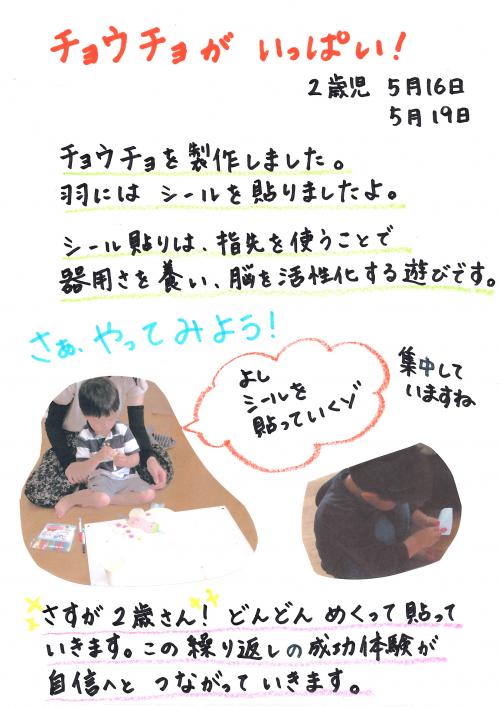 チョウチョが いっぱい!
2歳児 5月16日
5月19日
チョウチョを製作しました。
羽には シールを貼りましたよ。
シール貼りは、指先を使うことで
器用さを養い、脳を活性化する遊びです。
さぁ、やってみよう!
よし
シールを
貼っていくゾ
集中して
いますね
さすが2歳さん! どんどん めくって貼って
いきます。この繰り返しの成功体験が
自信へと つながっていきます。